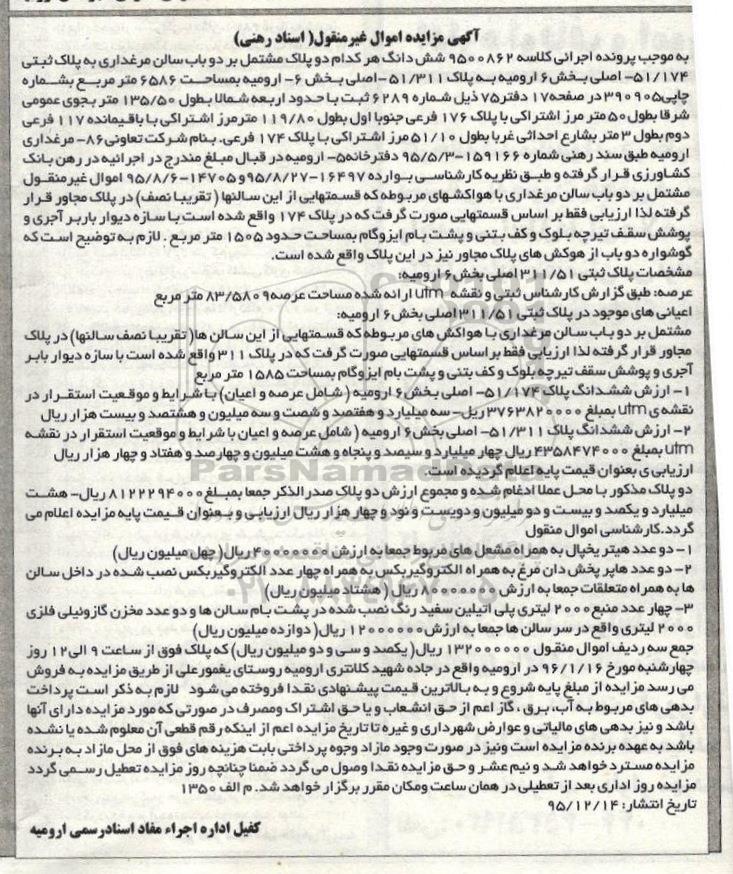 آگهی مزایده اموال غیرمنقول( اسناد رهنی)
به موجب پرونده اجرائی کلاسه ۹۵۰۰۸۶۲ شش دانگ هر کدام دو پلاک مشتمل بر دو باب سالن مرغداری به پلاک ثبتی
۵۱/۱۷۴- اصلی بخش۶ ارومیه به پلاک ۵۱/۳۱۱ -اصلی بخش ۶- ارومیه بمساحت ۶۵۸۶ متر مربع بشماره
چاپی۳۹۰۹۰۵در صفحه۱۷ دفتر۷۵ ذیل شماره ۶۲۸۹ ثبت با حدود اربعه شمالا بطول ۱۳۵/۵۰ متر بجوی عمومی
شرقا بطول۵۰ متر مرز اشتراکی با پلاک ۱۷۶ فرعی جنوبا اول بطول ۱۱۹/۸۰ مترمرز اشتراکی با باقیمانده ۱۱۷ فرعی
دوم بطول ۳ متر بشارع احداثی غربا بطول ۵۱/۱۰ مرز اشتراکی با پلاک ۱۷۴ فرعی. بنام شرکت تعاونی۸۶- مرغداری
ارومیه طبق سند رهنی شماره ۱۵۹۱۶۶-۹۵/۵/۳ دفترخانه۵- ارومیه در قبال مبلغ مندرج در اجرائیه در رهن بانک
کشاورزی قرار گرفته و طبق نظریه کارشناسی بوارده ۱۶۴۹۷-۹۵/۸/۲۷و۱۴۷۰۵-۹۵/۸/۶ اموال غیرمنقول
مشتمل بر دو باب سالن مرغداری با هواکشهای مربوطه که قسمتهایی از این سالنها ( تقریبا نصف) در پلاک مجاور قرار
گرفته لذا ارزیابی فقط بر اساس قسمتهایی صورت گرفت که در پلاک ۱۷۴ واقع شده است با سازه دیوار باربر آجری و
پوشش سقف تیرچه بلوک و کف بتنی و پشت بام ایزوگام بمساحت حدود ۱۵۰۵ متر مربع . لازم به توضیح است که
گوشواره دو باب از هوکش های پلاک مجاور نیز در این پلاک واقع شده است.
مشخصات پلاک ثبتی ۳۱۱/۵۱ اصلی بخش۶ ارومیه:
عرصه: طبق گزارش کارشناس ثبتی و نقشه utm ارائه شده مساحت عرصه۸۳/۵۸۰۹ متر مربع
اعیانی های موجود در پلاک ثبتی ۳۱۱/۵۱اصلی بخش۶ ارومیه:
مشتمل بر دو باب سالن مرغداری با هواکش های مربوطه که قسمتهایی از این سالن ها( تقریبا نصف سالنها) در پلاک
مجاور قرار گرفته لذا ارزیابی فقط بر اساس قسمتهایی صورت گرفت که در پلاک ۳۱۱ واقع شده است با سازه دیوار بابر
آجری و پوشش سقف تیرچه بلوک و کف بتنی و پشت بام ایزوگام بمساحت ۱۵۸۵ متر مربع
۱- ارزش ششدانگ پلاک ۵۱/۱۷۴- اصلی بخش۶ ارومیه ( شامل عرصه و اعیان) با شرایط و موقعیت استقرار در
نقشه ی utm بمبلغ ۳۷۶۳۸۲۰۰۰۰ریل- سه میلیارد و هفتصد و شصت و سه میلیون و هشتصد و بیست هزار ریال
۲- ارزش ششدانگ پلاک ۵۱/۳۱۱- اصلی بخش۶ ارومیه ( شامل عرصه و اعیان با شرایط و موقعیت استقرار در نقشه
utm بمبلغ ۴۳۵۸۴۷۴۰۰۰ ریال چهار میلیارد و سیصد و پنجاه و هشت میلیون و چهارصد و هفتاد و چهار هزار ریال
ارزیابی بعنوان قیمت پایه اعلام گردیده است.
دو پلاک مذکور با محل عملا ادغام شده و مجموع ارزش دو پلاک صدر الذکر جمعا بمبلغ ۸۱۲۲۲۹۴۰۰۰ ریال- هشت
میلیارد و یکصد و بیست و دو میلیون و دویست و نود و چهار هزار ریال ارزیابی و بعنوان قیمت پایه مزایده اعلام می
گردد.کارشناسی اموال منقول
۱- دو عدد هیتر یخپال به همراه مشعل های مربوط جمعا به ارزش ۴۰۰۰۰۰۰۰ ریال( چهل میلیون ریال)
۲- دو عدد هاپر پخش دان مرغ به همراه الکتروگیربکس به همراه چهار عدد الکتروگیربکس نصب شده در داخل سالن
ها به همراه متعلقات جمعا به ارزش ۸۰۰۰۰۰۰۰ ریال ( هشتاد میلیون ریال)
۳- چهار عدد منبع۲۰۰۰ لیتری پلی اتیلین سفید رنگ نصب شده در پشت بام سالن ها و دو عدد مخزن گازوئیلی فلزی
۲۰۰۰ لیتری واقع در سر سالن ها جمعا به ارزش ۱۲۰۰۰۰۰۰ ریال( دوازده میلیون ریال)
جمع سه ردیف اموال منقول ۱۳۲۰۰۰۰۰۰ ریال( یکصد و سی و دو میلیون ریال) که پلاک فوق از ساعت ۹ الی۱۲ روز
چهارشنبه مورخ ۹۶/۱/۱۶ در ارومیه واقع در جاده شهید کلانتری ارومیه روستای یغمورعلی از طریق مزایده به فروش
می رسد مزایده از مبلغ پایه شروع و به بالاترین قیمت پیشنهادی نقدا فروخته می شود لازم به ذکر است پرداخت
بدهی های مربوط به آب، برق ، گاز اعم از حق انشعاب و یا حق اشتراک ومصرف در صورتی که مورد مزایده دارای آنها
باشد و نیز بدهی های مالیاتی و عوارض شهرداری و غیره تا تاریخ مزایده اعم از اینکه رقم قطعی آن معلوم شده یا نشده
باشد به عهده برنده مزایده است ونیز در صورت وجود مازاد وجوه پرداختی بابت هزینه های فوق از محل مازاد به برنده
مزایده مسترد خواهد شد و نیم عشر و حق مزایده نقدا وصول می گردد ضمنا چنانچه روز مزایده تعطیل رسمی گردد
مزایده روز اداری بعد از تعطیلی در همان ساعت ومکان مقرر برگزار خواهد شد. م الف ۱۳۵۰
تاریخ انتشار: ۹۵/۱۲/۱۴
کفیل اداره اجراء مفاد اسنادرسمی ارومیه